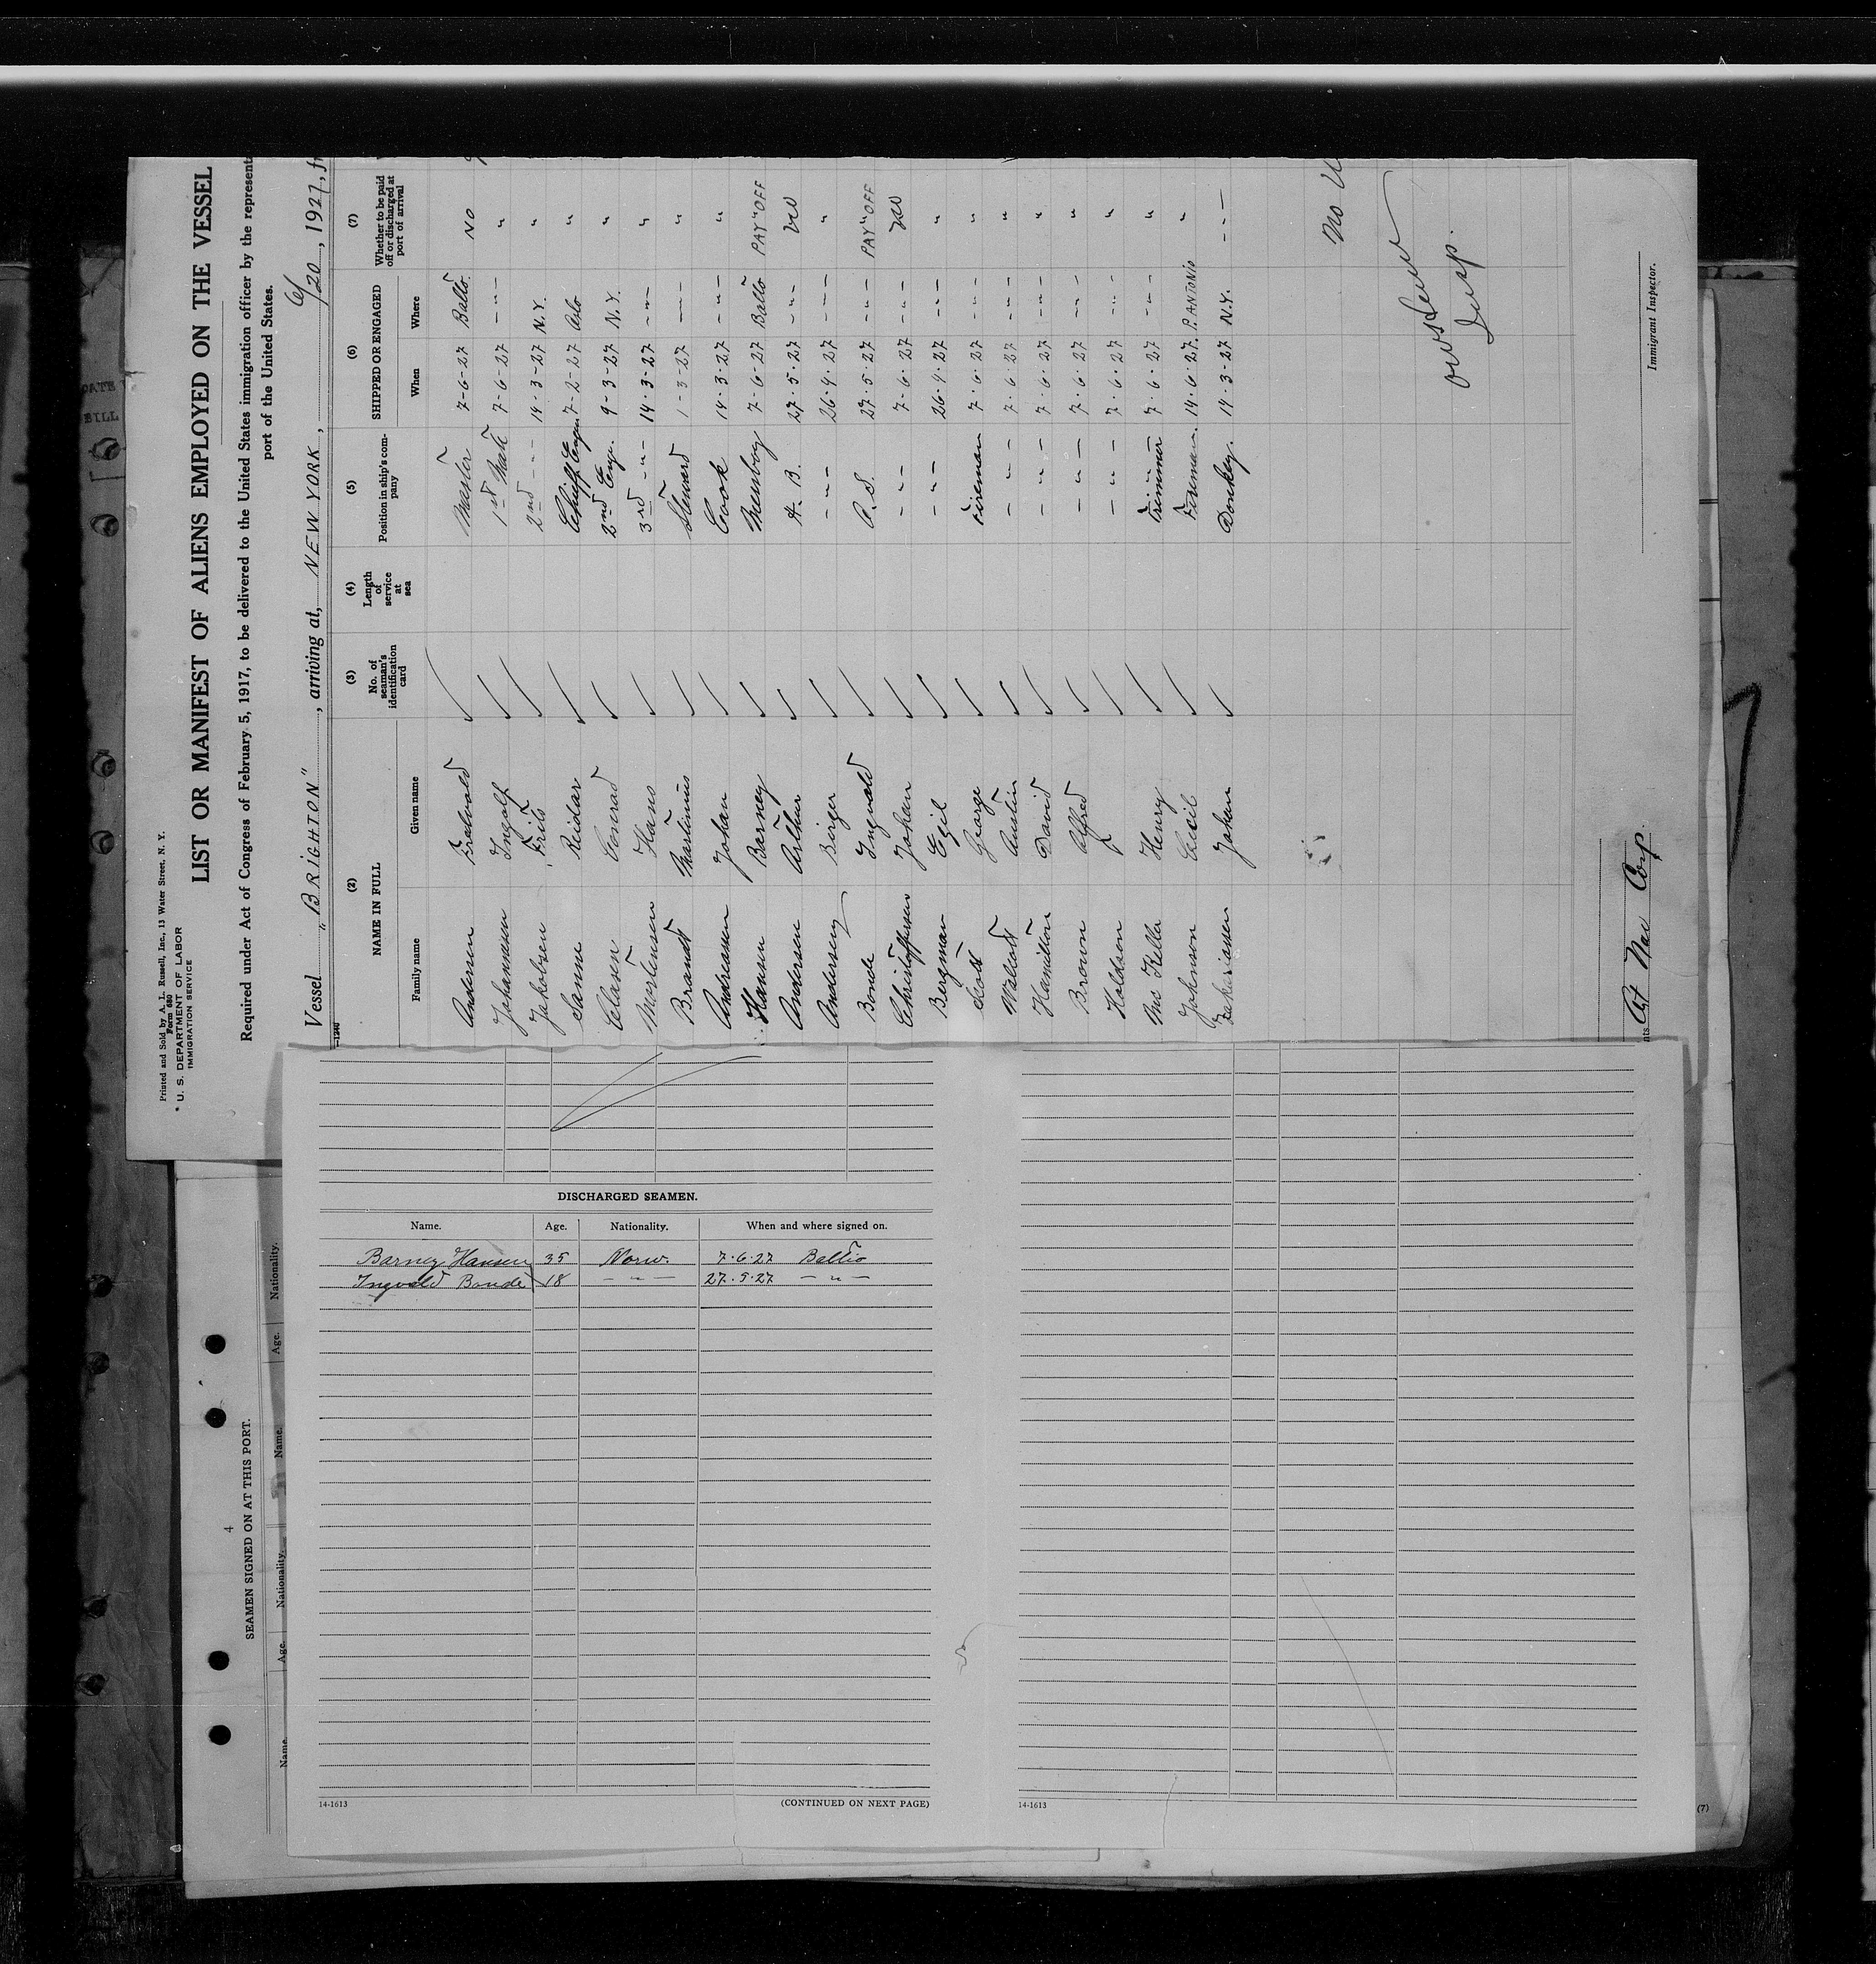 Printed and Sold by A. L. Russell, Inc., 13 Water Street, N. Y.
Form 680
U. S. DEPARTMENT OF LABOR
IMMIGRATION SERVICE
LIST OR MANIFEST OF ALIENS EMPLOYED ON THE VESSEL
Required under Act of Congress of February 5, 1917, to be delivered to the United States immigration officer by the represent
port of the United States.
Vessel "BRIGHTON", arriving at, NEW YORK, 6/20, 1927, fr
(2) (3) (4) (5) (6) (7)
NAME IN FULL No. of seaman's identification card Length of service at sea Position in ship's company SHIPPED OR ENGAGED Whether to be paid off or discharged at port of arrival
Family name Given name When Where
Andersen Master 7-6-27 Balto. NO
Johannesen Ingolf 1st Mate 7-6-27 - " - "
Jakobsen Frits 2nd - " - 14-3-27 N.Y. "
Sanne Reidar Chief Engin. 7-2-27 "
Clasen Conrad 2nd Eng. 9-3-27 N.Y. "
Martinsen Hans 3rd - " - 14.3-27 - " - "
Brandt Martinius Steward 1-3-27 - " - "
Andreassen Johan Cook 14.3.27 - " - "
Hansen Barney Messboy 7-6-27 Balto PAY OFF
Andersen Arthur A. B. 27.5.27 - " - no
Andersen Birger - " - 26.4.27 - " - "
Bonde Ingvald O.S. 27.5.27 - " - PAY OFF
Christoffersen Johan - " - 7.6.27 - " - no
Bergman Egil - " - 26.4.27 - " - "
Scott George Fireman 7.6.27 - " - "
Walcott Austin - " - 7.6.27 - " - "
Hamilton David - " - 7.6.27 - " - "
Brown Alfred - " - 7.6.27 - " - "
Holdson - " - 7.6.27 - " - "
Mc Kella Henry Trimmer 7.6.27 - " - "
Johnson Cecil Fireman. 14.6.27. P. ANTONIO "
Zakariassen Johan Donkey. 14.3-27 N.Y. - " -
No
Insp.
Immigrant Inspector.
Nav Corp.
DISCHARGED SEAMEN.
Name. Age. Nationality. When and where signed on.
Barney Hansen 35 Norw. 7.6.27 Baltio
Ingvald Bonde 18 - " - 27.5.27 - " -
14-1613 (CONTINUED ON NEXT PAGE)
14-1613
(7)
4
SEAMEN SIGNED ON AT THIS PORT.
Name. Age. Nationality. Name. Age. Nationality.
DATE
BILL